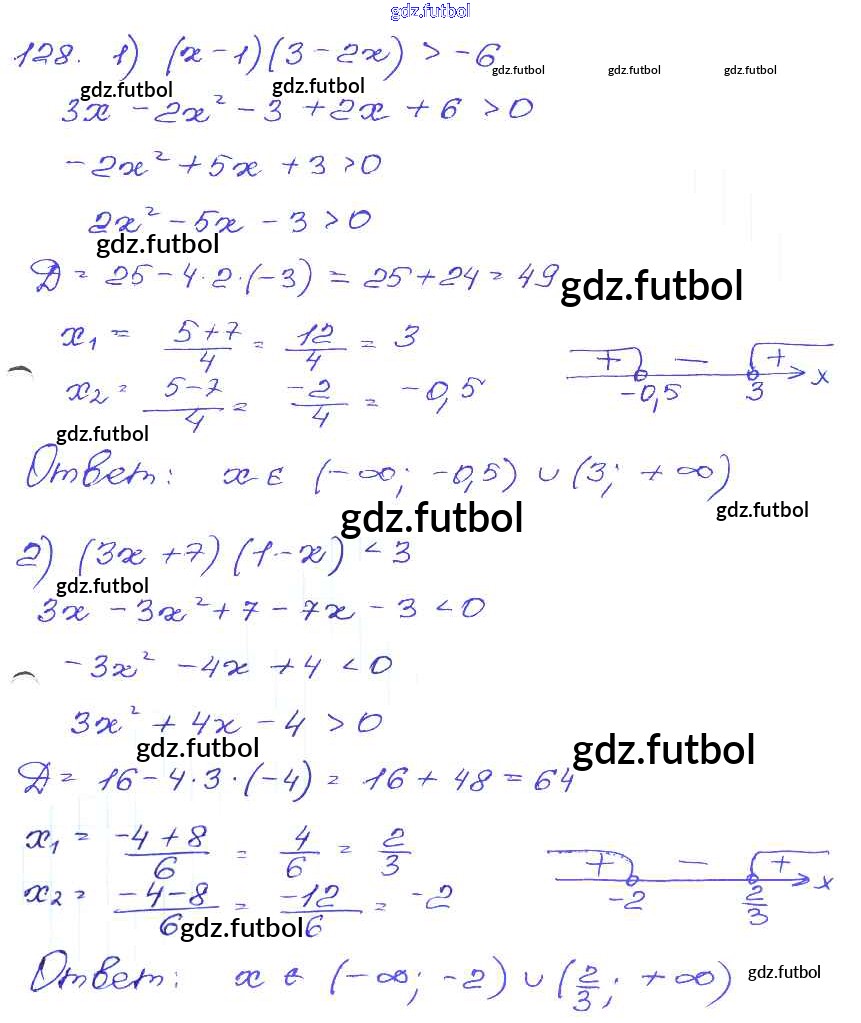 gdz.futbol
128. 1) (x - 1)(3 - 2x) > -6
gdz.futbol gdz.futbol gdz.futbol
gdz.futbol gdz.futbol
3x - 2x² - 3 + 2x + 6 > 0
-2x² + 5x + 3 > 0
2x² - 5x - 3 > 0
gdz.futbol
Д = 25 - 4·2·(-3) = 25 + 24 = 49
gdz.futbol
x₁ = (5+7)/4 = 12/4 = 3
x₂ = (5-7)/4 = -2/4 = -0,5
+ - +
-0,5 3 x
gdz.futbol
Ответ: x ∈ (-∞; -0,5) ∪ (3; +∞)
gdz.futbol gdz.futbol
2) (3x + 7)(1 - x) < 3
gdz.futbol
3x - 3x² + 7 - 7x - 3 < 0
-3x² - 4x + 4 < 0
3x² + 4x - 4 > 0
gdz.futbol gdz.futbol
Д = 16 - 4·3·(-4) = 16 + 48 = 64
x₁ = (-4+8)/6 = 4/6 = 2/3
x₂ = (-4-8)/6 = -12/6 = -2
+ - +
-2 2/3 x
gdz.futbol
Ответ: x ∈ (-∞; -2) ∪ (2/3; +∞)
gdz.futbol